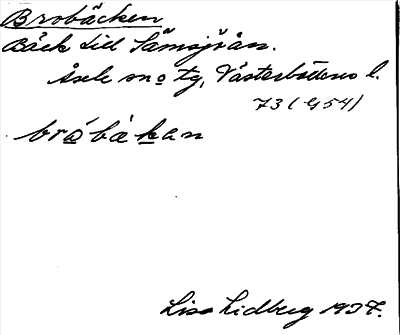 Brobäcken
Bäck till Sämsjöån.
Åsele sn o tg, Västerbottens l.
73 (G 54)
bròbäkan
Lisa Lidberg 1937.